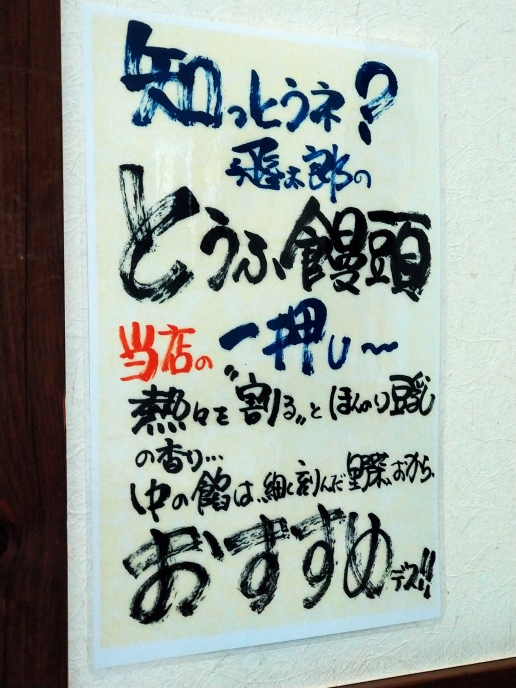 知っとうネ?
飛太郎の
とうふ饅頭
当店の一押し〜
熱々を“割る”とほんのり豆乳
の香り…
中の餡は、細く刻んだ野菜、おから、
おすすめデス!!